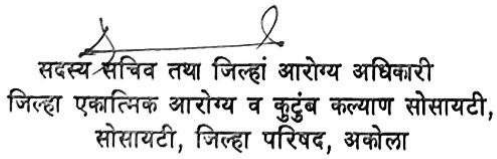 सदस्य सचिव तथा जिल्हां आरोग्य अधिकारी
जिल्हा एकात्मिक आरोग्य व कुटुंब कल्याण सोसायटी,
सोसायटी, जिल्हा परिषद, अकोला